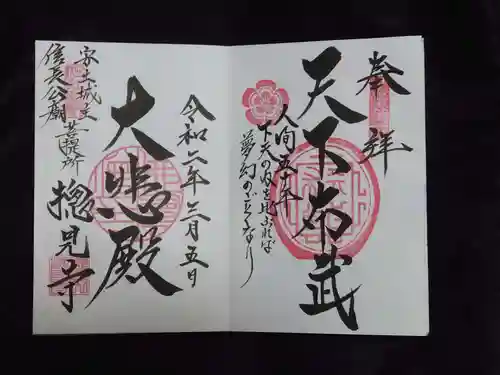 奉拝
天下布武
人間五十年
下天の内を比ぶれば
夢幻の如くなり
令和二年三月五日
大悲殿
安土城主
信長公廟
菩提所
摠見寺